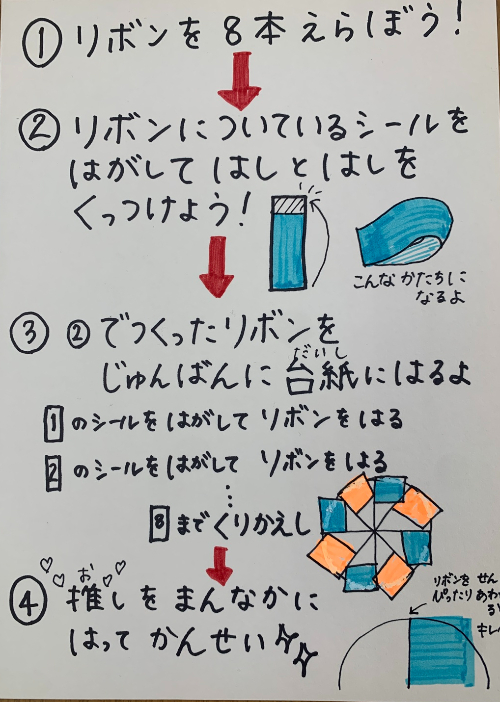 ① リボンを 8本 えらぼう!
② リボンについているシールを
はがして はしとはしを
くっつけよう!
こんな かたちに
なるよ
③ ②でつくったリボンを
だいし
じゅんばんに 台紙にはるよ
1 のシールをはがして リボンをはる
2 のシールをはがして リボンをはる
⋮
8 まで くりかえし
お
④ 推しを まんなかに
はって かんせい
リボンを せん
ぴったり あわ